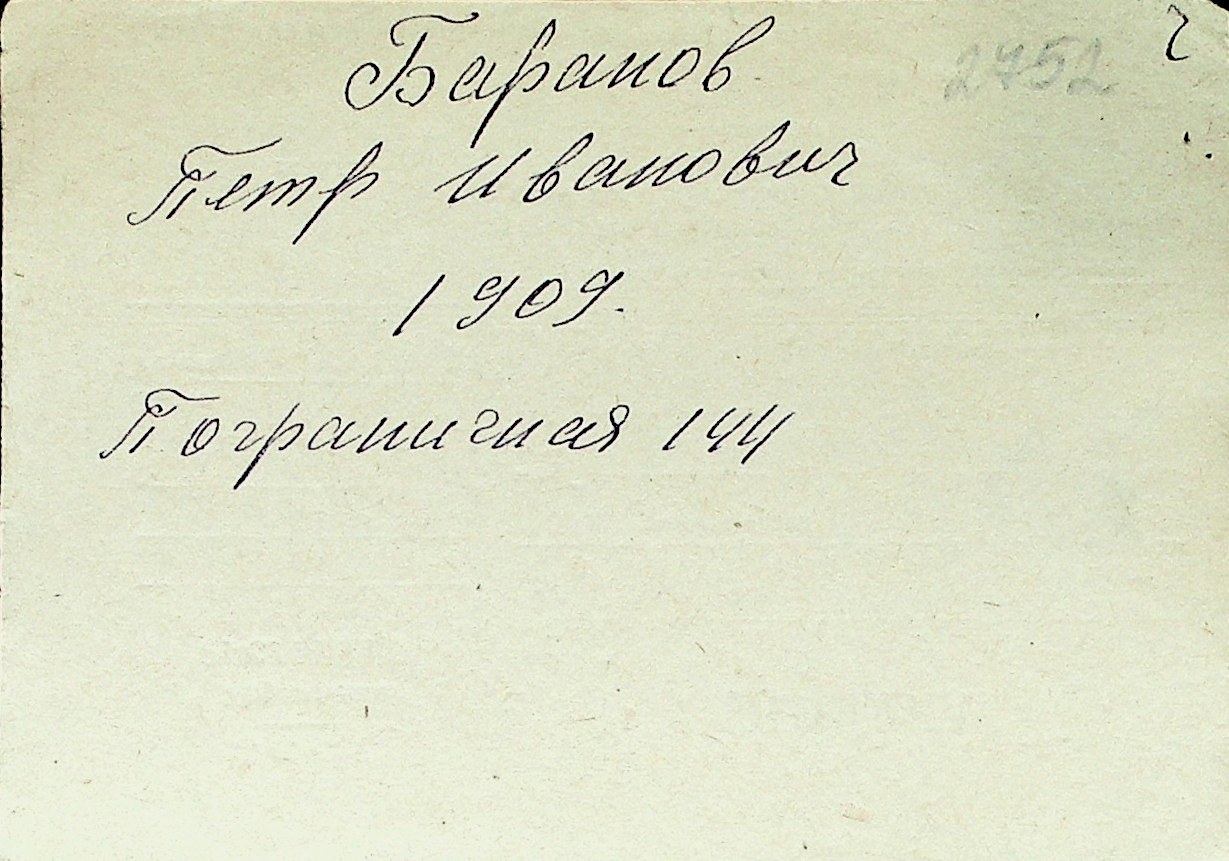 Баранов 2752
Петр Иванович
1909.
Пограничная 144